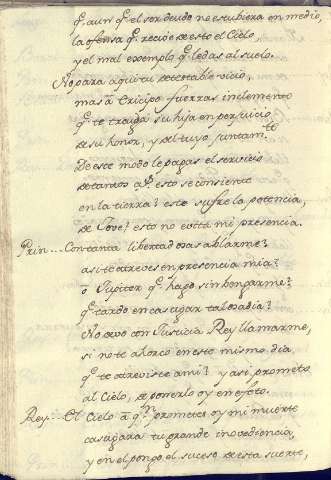 q.e aun q.e el ser deudo no estubiera en medio,
la ofensa q.e recive de esto el Cielo,
y el mal exemplo q.e le das al suelo.
No para aqui tu detestable vicio,
mas a Crisipo fuerzas inclemente
q.e te traiga su hija en perjuicio
de su honor, y del tuyo juntam.te
De este modo le pagas el servicio
de tantos a.s? esto se consiente
en la tierra? esto sufre la potencia,
de Jove? esto no evita mi presencia.
Prin... Con tanta libertad osas ablarme?
asi te atreves en presencia mia?
o Jupiter q.e hago sin bengarme?
q.e tardo en castigar tal osadia?
No devo con Justicia Rey llamarme,
si no te ahorco en este mismo dia
q.e te atreviste a mi? y asi prometo
al Cielo, de ponerlo oy en efeto.
Rey... El Cielo a q.n prometes oy mi muerte
castigara tu grande inovediencia,
y en el pongo el suceso de esta suerte,